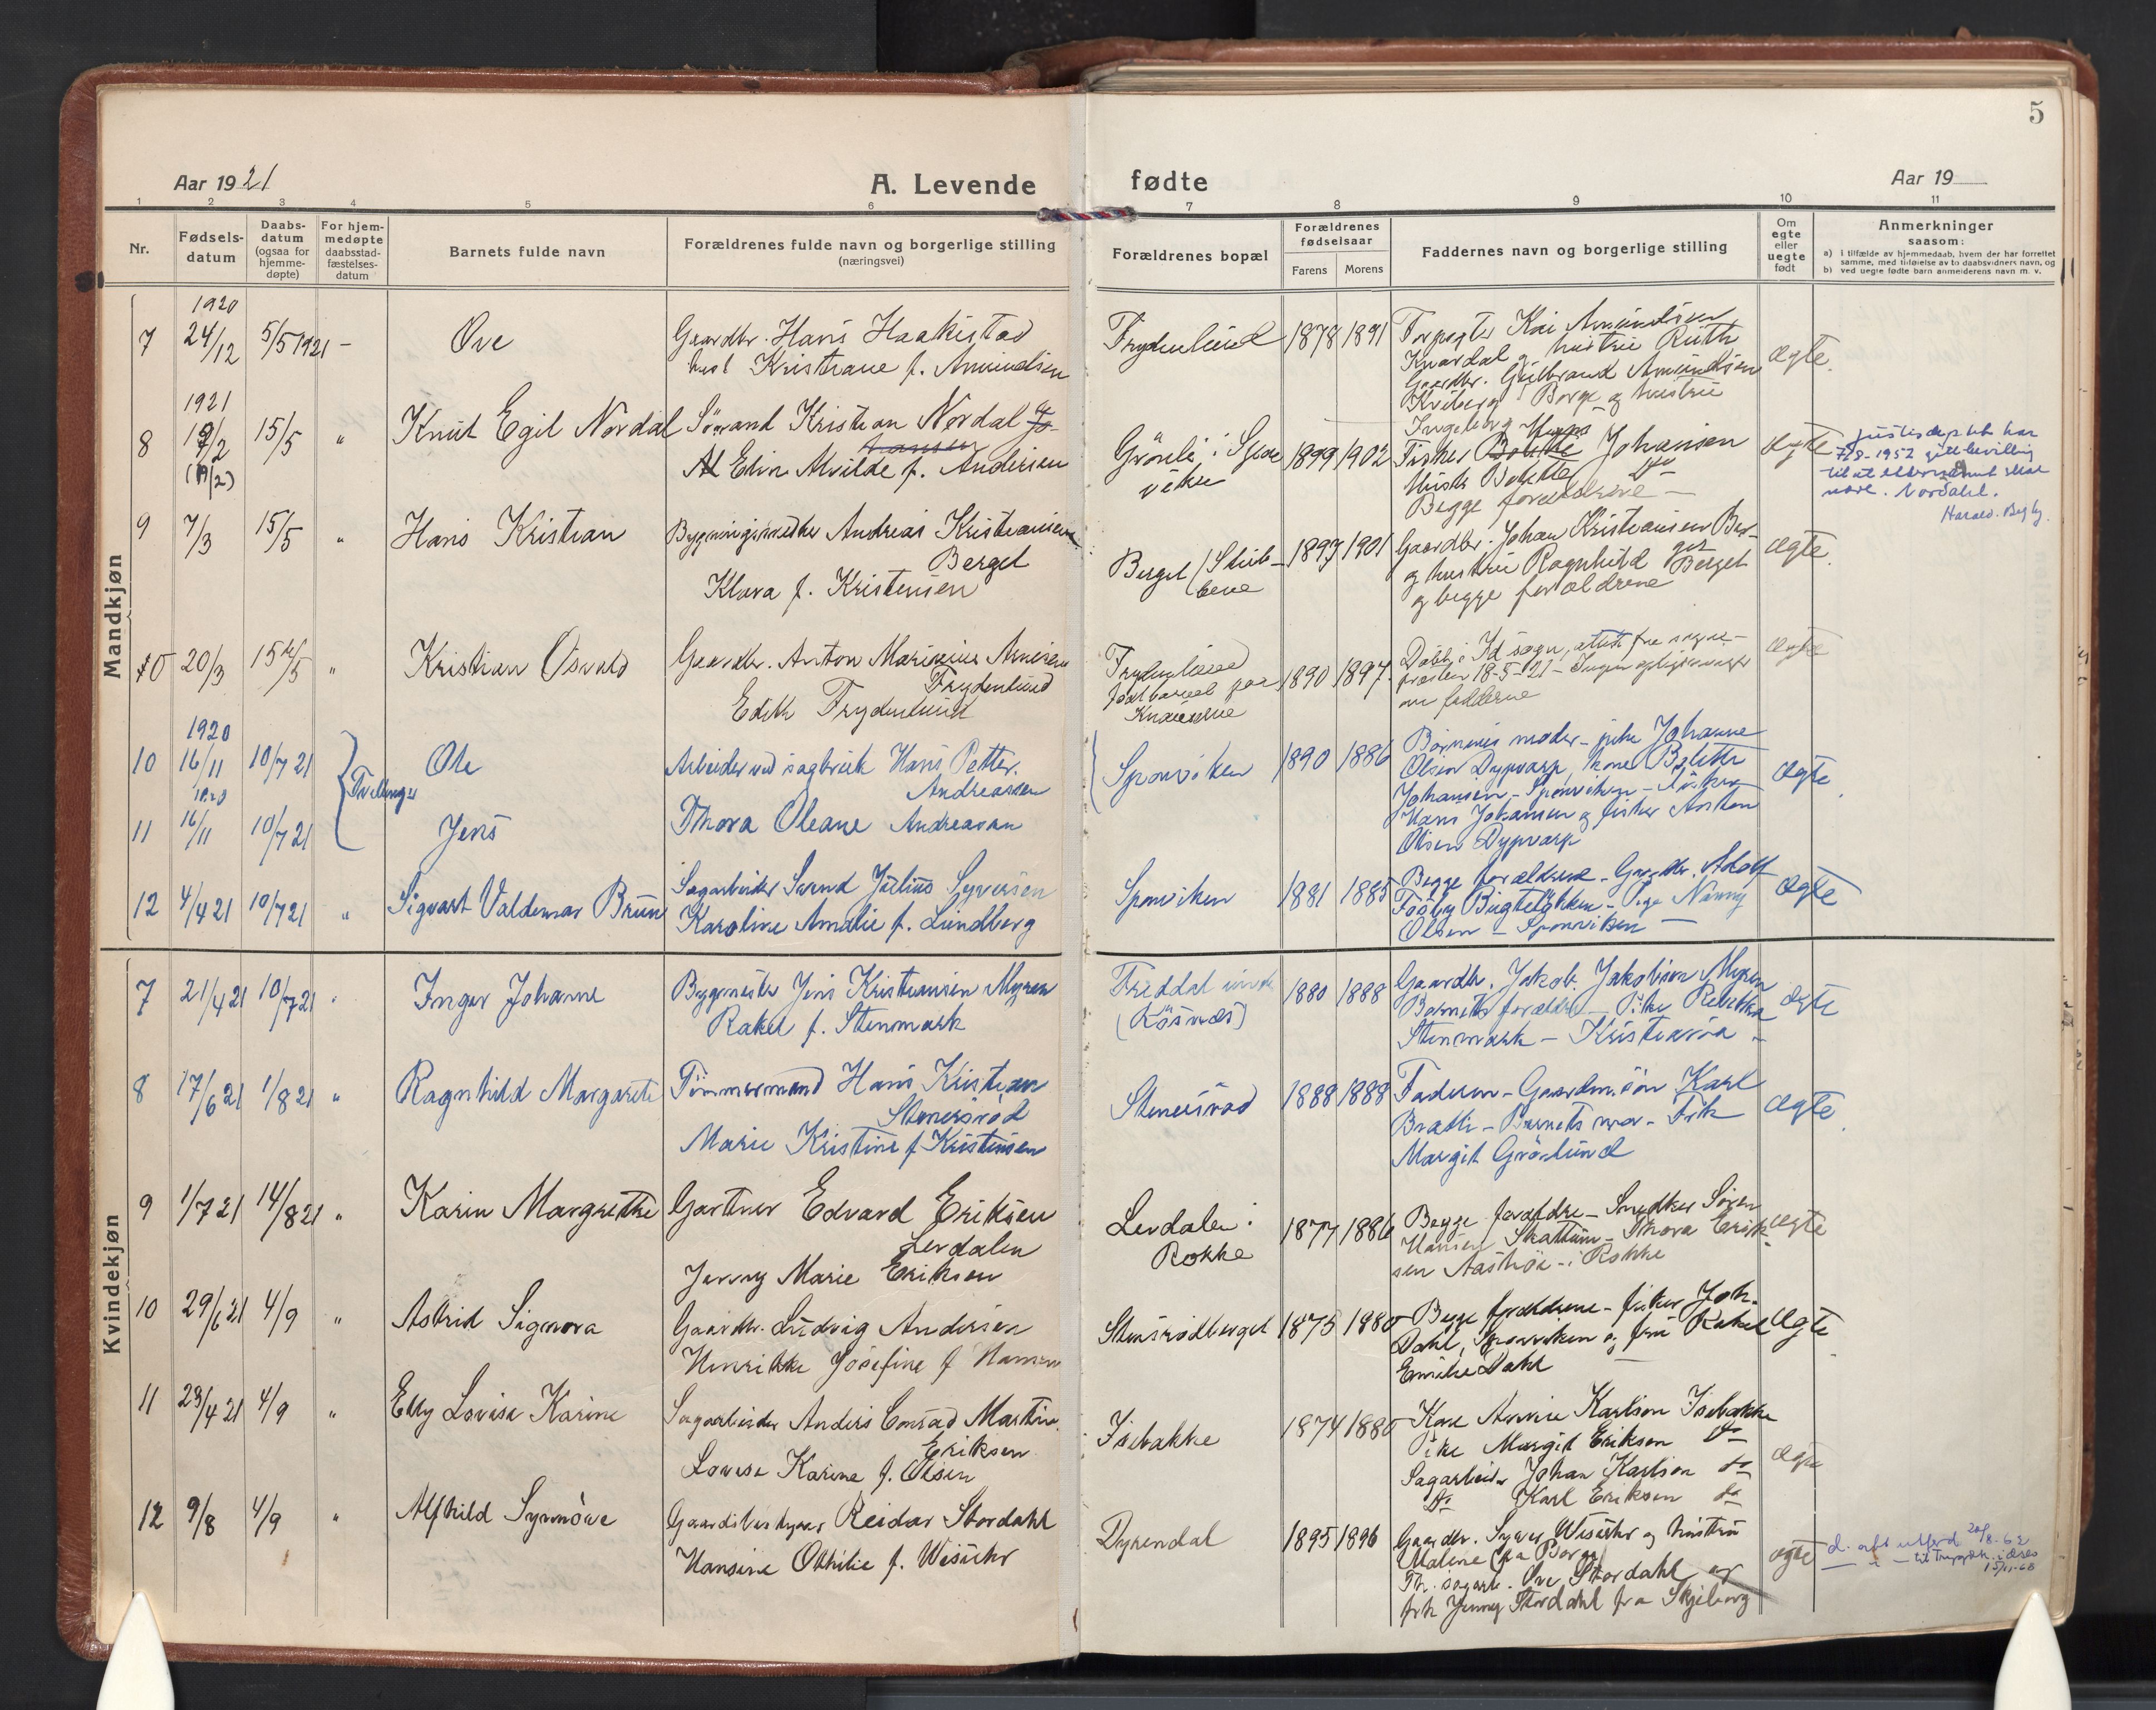 5
Aar 1921
A. Levende fødte
Aar 19
1 2 3 4 5 6 7 8 9 10 11
Nr.
Fødsels-
datum
Daabs-
datum
(ogsaa for
hjemme-
døpte)
For hjem-
medøpte
daabsstad-
fæstelses-
datum
Barnets fulde navn
Forældrenes fulde navn og borgerlige stilling
(næringsvei)
Forældrenes bopæl
Forældrenes
fødselsaar
Farens Morens
Faddernes navn og borgerlige stilling
Om
egte
eller
uegte
født
Anmerkninger
saasom:
a) I tilfælde av hjemmedaab, hvem der har forrettet
samme, med tilføielse av to daabsvidners navn, og
b) ved uegte fødte barn anmelderens navn m. v.
Mandkjøn
1920
7 24/12 5/5 1921 - Ove
Gaardbr. Hans Haakistad
Kristiane f. Amundsen
Frydenlund 1878 1891
Forpagter Kai Amundsen
Knardal og hustru Ruth
Gaardbr. Gulbrand Amundsen
Kviberg Borge og hustru
Ingeborg
ægte.
1921
8 15/5 " Knut Egil Nordal
(19/2)
Sømand Kristian Nordal Jo-
hansen
Elin Alvilde f. Andersen
Grönli i 1899 1902
Fisker Johansen
Begge forældrene
ægte
justisdeptet har
7/8-1952 gitt bevilling
til at etternavnet skal
være. Nordahl.
Harald Begby.
9 7/3 15/5 " Hans Kristian
Bygningssnedker Andreas Kristiansen
Berget
Klara f. Kristensen
Berget 1897 1901
Gaardbr. Johan Kristiansen Ber-
get
og hustru Ragnhild Berget
og begge forældrene
ægte.
10 20/3 15/5 " Kristian Osvald
Gaardbr. Anton Marinius Arnesen
Frydenlund
Edith Frydenlund
Frydenlund
1890 1897
Døbt i Id sogn, attest fra sogne-
presten 18-5-21 - Ingen
om fadderne
ægte
1920
10 16/11 10/7 21 Ole
Tvillinger
1920
11 16/11 10/7 21 Jens
Arbeider ved sagbruk Hans Petter.
Andreassen
Thora Oleane Andreassen
Sponviken 1890 1886
Barnenes moder - pike Johanne
Olsen Dypvarp, kone
Johansen - Sponviken -
Hans Johansen og fisker Anton
Olsen Dypvarp
ægte.
12 4/4 21 10/7 21 " Sigvart Valdemar Bruun
Sagarbeider Svend Julius Syversen
Karoline Amalie f. Lundberg
Sponviken 1881 1885
Begge forældrene - Gaardbr. Adolf
Fosby - Pige Nanny
Olsen - Sponviken -
ægte
Kvindekjøn
7 21/4 21 10/7 21 " Inger Johanne
Bygmester Jens Kristiansen Myren
Rakel f. Stenmark
1880 1888
Gaardbr. Jakob Jakobsen Myren
Barnets forældre - Pike Rebekka
Stenmark - Kristiania -
ægte
8 17/6 21 1/8 21 " Ragnhild Margarete
Tømmermand Hans Kristian
Stenersrød
Marie Kristine f. Kristensen
Stenersrød 1888 1888
Faderen - Gaardm.søn Karl
Braathe - Barnets mor - Frk
Margit Grönlund
ægte.
9 1/7 21 14/8 21 " Karin Margrethe
Gartner Edvard Eriksen
Lerdalen
Jenny Marie Eriksen
Lerdalen i
Rokke
1877 1886
Begge forældre - Snedker Søren
Hansen Skattum - Thora Erik-
sen Aastrøe - i Rokke
ægte
10 29/6 21 4/9 " Astrid Signora
Gaardbr. Ludvig Andersen
Henrikke Josefine f. Hansen
Stensrødberget 1875 1880
Begge forældrene - fisker Joh.
Dahl, Sponviken og fru Rakel
Emilie Dahl
ægte.
11 23/4 21 4/9 " Elly Lovise Karine
Sagarbeider Anders Conrad Martin
Eriksen
Lovise Karine f. Olsen
Isebakke 1874 1880
Kone Annie Karlsen Isebakke
Pike Margit Eriksen do
Sagarbeider Johan Karlsen do
do Karl Eriksen do
ægte
12 9/8 4/9 " Alfhild Synnöve
Gaardsbestyrer Reidar Stordahl
Hansine Othilie f. Wisuhr
Dyrendal 1895 1896
Gaardbr. Syver Wisuhr og hustru
Malene fra Borge
sagarb. Ove Stordahl og
frk Jenny Stordahl fra Skjeberg
ægte
d. att utferd 20/8-62
15/11-68